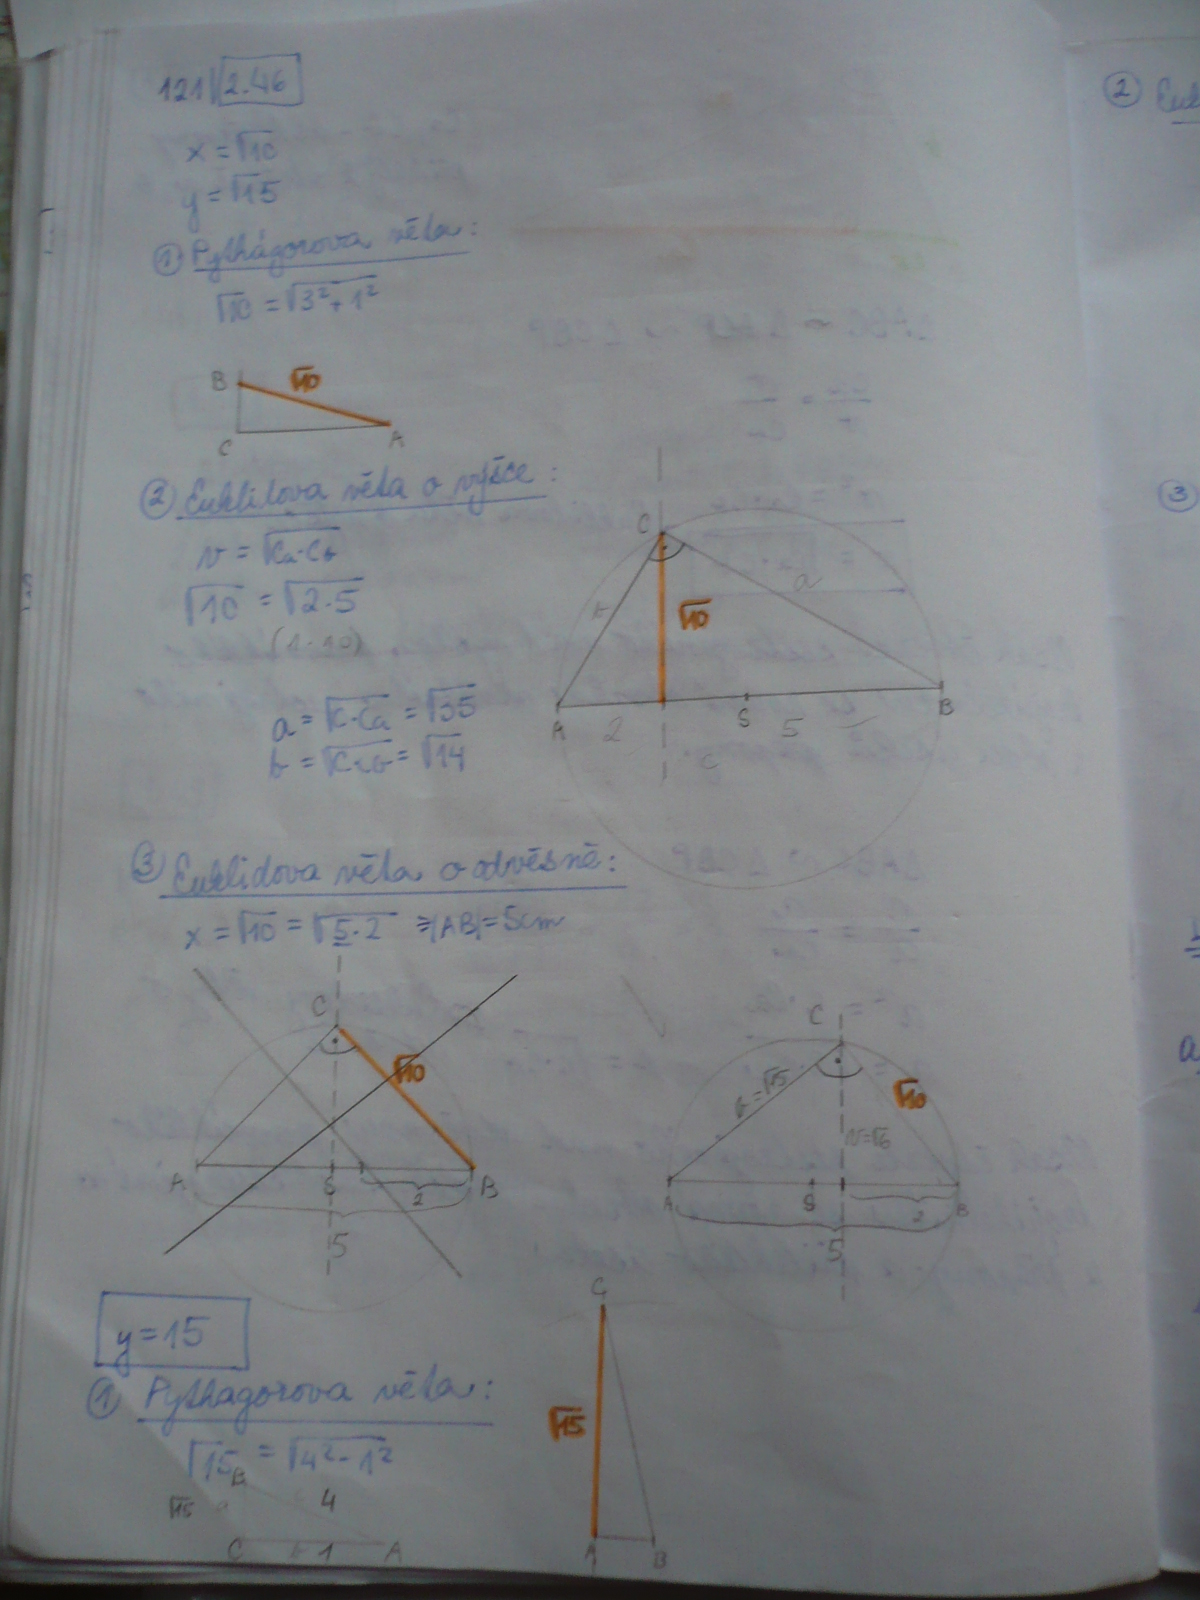 121 2.46
x = √10
y = √15
① Pythágorova věta:
√10 = √3²+1²
B √10
C A
② Euklidova věta o výšce:
v = √ca·cb
√10 = √2·5
(1·10)
a = √c·ca = √35
b = √c·cb = √14
C
b √10 a
A 2 S 5 B
c
③ Euklidova věta o odvěsně:
x = √10 = √5·2 ⇒|AB|= 5cm
C
√10
A S 2 B
5
C
b=√15 √10
v=√6
A S 2 B
5
y=15
① Pythagorova věta:
√15 = √4²-1²
B
√15 a 4
C b 1 A
C
√15
A B
② Eukl
③
a